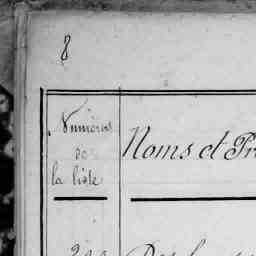 8
Numéros
de
la liste
Noms et Pr